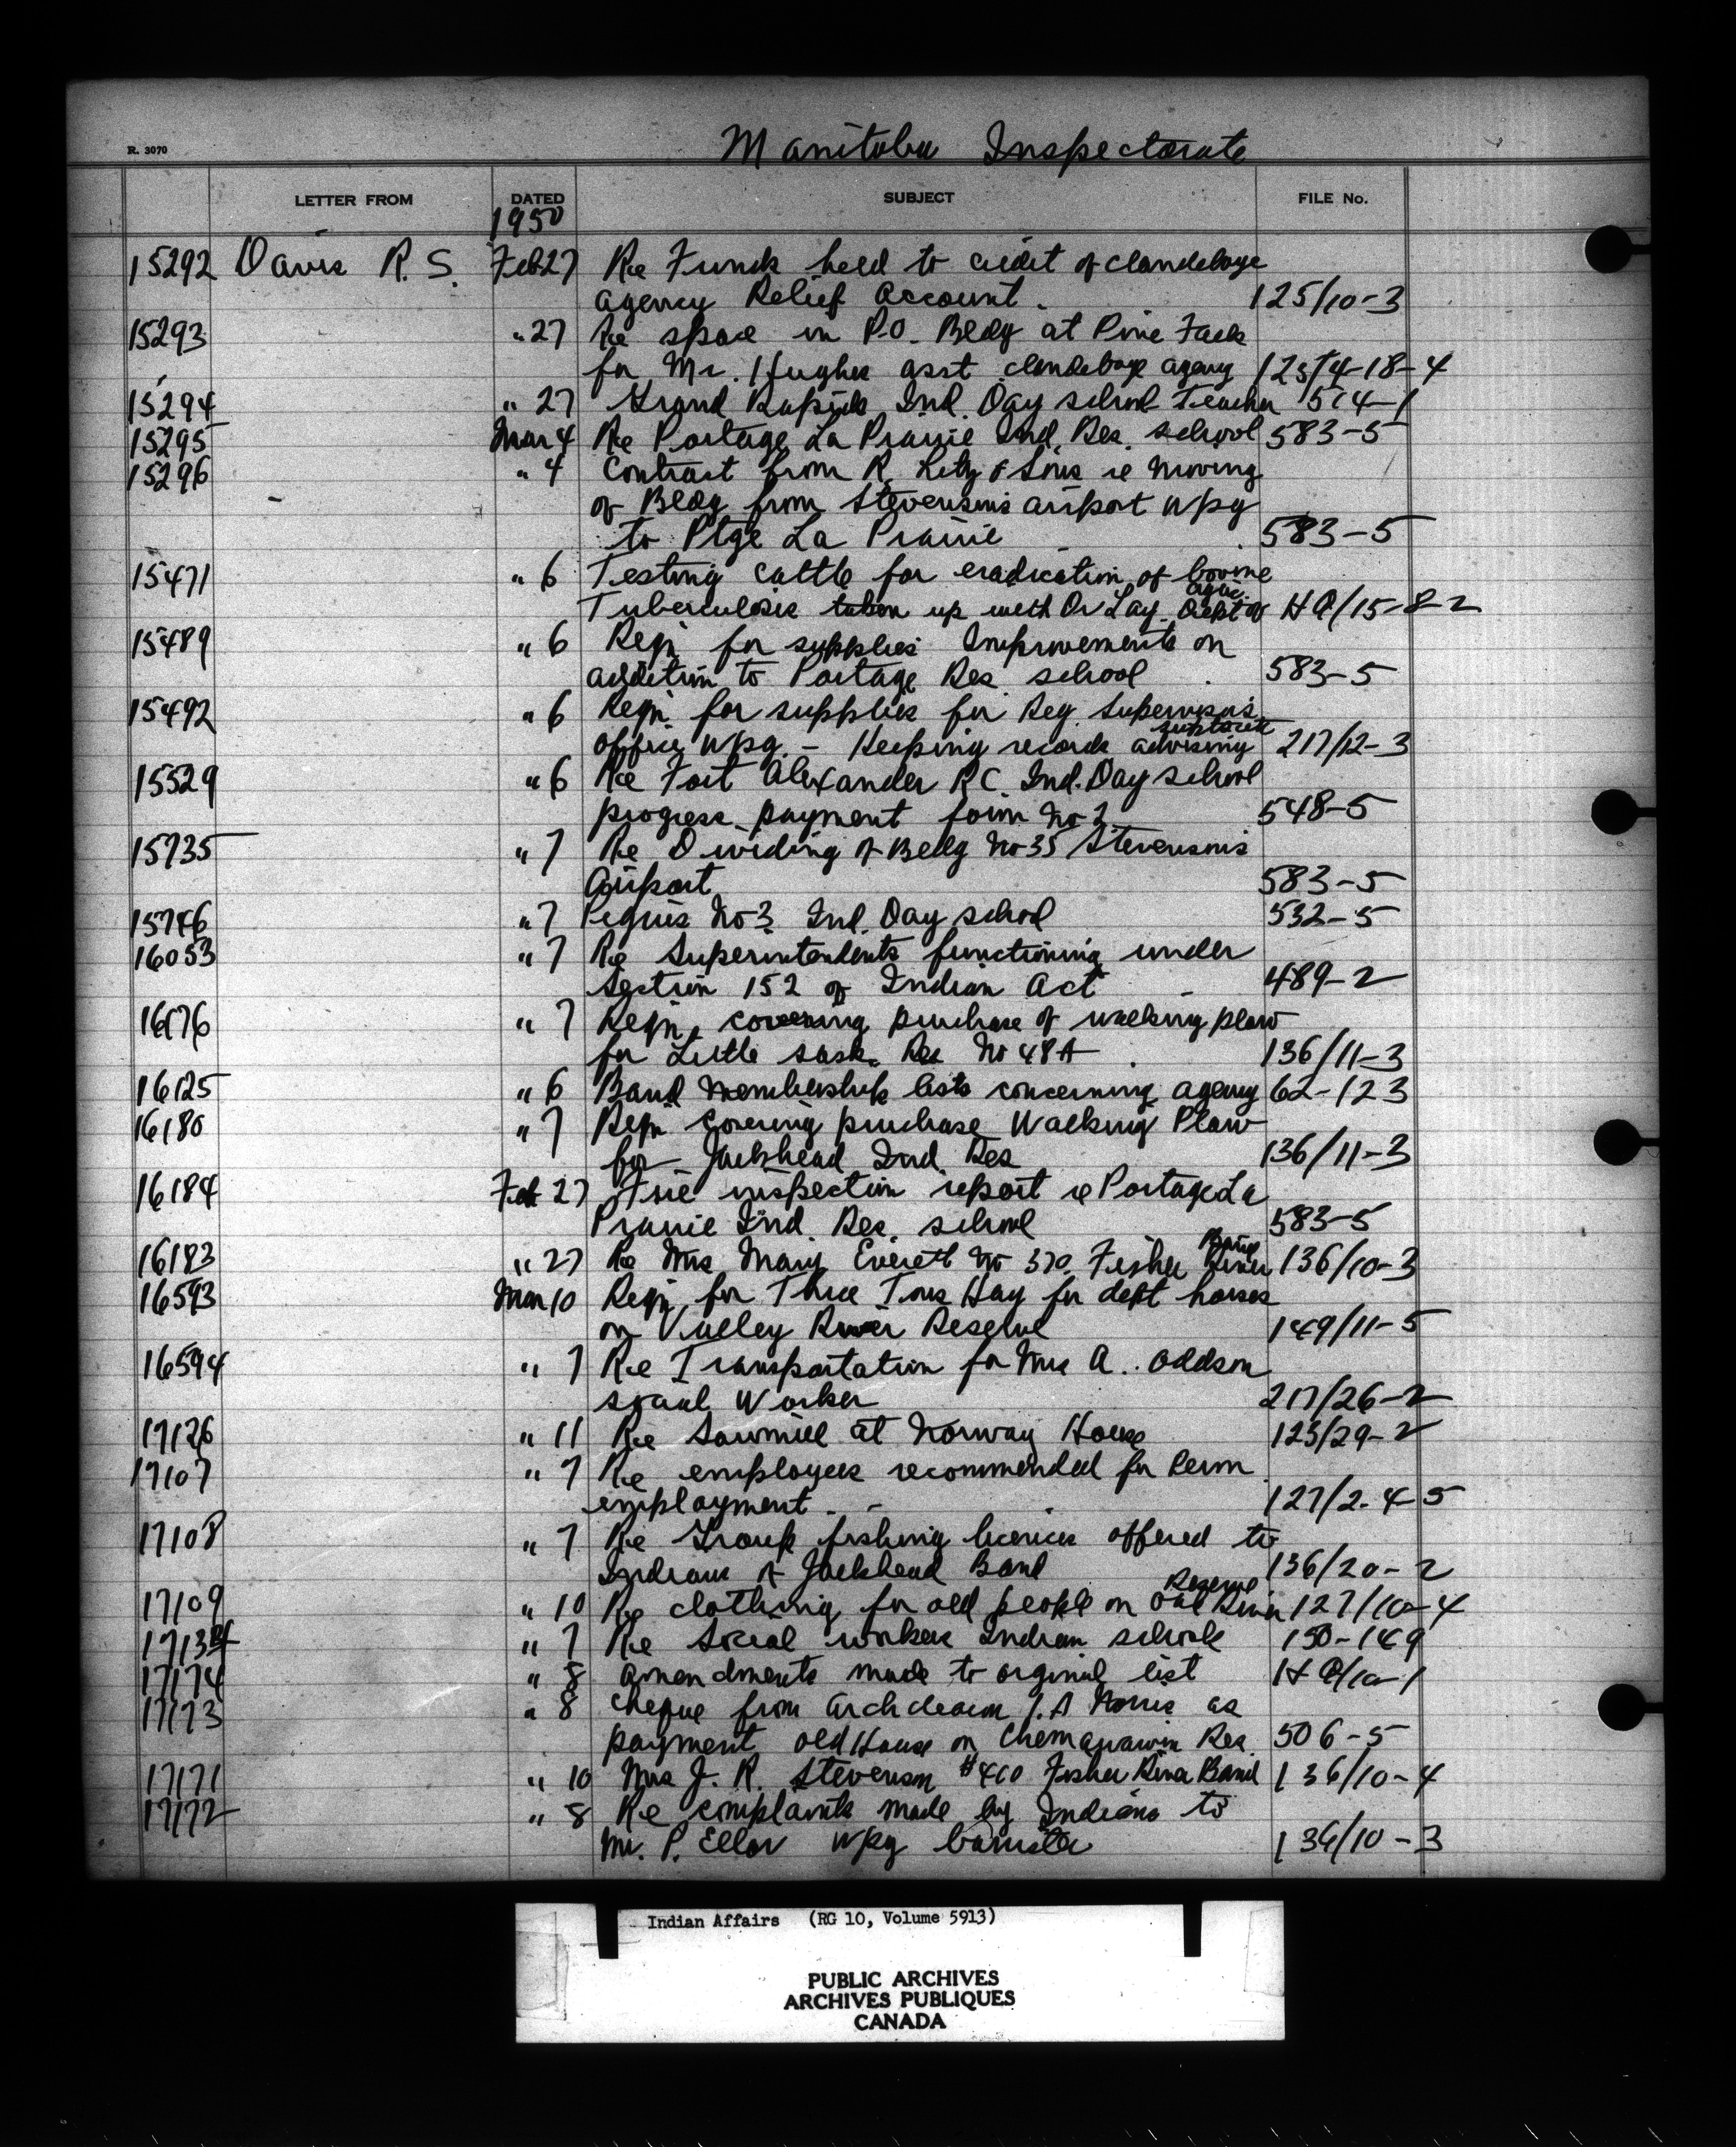 R. 3070
Manitoba Inspectorate
LETTER FROM DATED SUBJECT FILE No.
1950
15292 Davis R. S. Feb 27 Re Funds held to credit of Clandeboye
agency Relief Account. 125/10-3
15293 " 27 Re space in P.O. Bldg at Pine Falls
for Mr. Hughes asst Clandeboye agency 125/4-18-4
15294 " 27 Grand Rapids Ind. Day school Teacher 514-1
15295 Mar 4 Re Portage La Prairie Ind. Res. school 583-5
15296 " 4 Contract from R. & Sons re moving
of Bldg from Stevensons airport Wpg
to Ptge La Prairie 583-5
15471 " 6 Testing cattle for eradication of bovine
Tuberculosis taken up with Dr Lay Dept of Agric. HQ/15-8-2
15489 " 6 Reqn for supplies Improvements on
addition to Portage Res. school 583-5
15492 " 6 Reqn. for supplies for Reg. Supervisor's
office Wpg. - Keeping records advising 217/12-3
15529 " 6 Re Fort Alexander R C. Ind. Day school
progress payment form No 2 548-5
15735 " 7 Re Dividing of Bldg No 35 Stevensons
Airport 583-5
15746 " 7 Peguis No 3 Ind. Day school 532-5
16053 " 7 Re Superintendents functioning under
Section 152 of Indian Act 489-2
16176 " 7 Reqn. covering purchase of walking plow
for Little Sask. Res No 48A 136/11-3
16125 " 6 Band membership lists concerning agency 62-123
16180 " 7 Reqn covering purchase Walking Plow
for Jackhead Ind. Res 136/11-3
16184 Feb 27 Fire inspection report re Portage La
Prairie Ind. Res. school 583-5
16183 " 27 Re Mrs Mary Everett No 370 Fisher River Band 136/10-3
16593 Mar 10 Reqn for Three Tons Hay for dept horses
on Valley River Reserve 149/11-5
16594 " 7 Re Transportation for Mrs A. Oddson
social Worker 217/26-2
17126 " 11 Re Sawmill at Norway House 123/29-2
17107 " 7 Re employees recommended for Perm
employment. 127/2-4-5
17108 " 7 Re Group fishing licences offered to
Indians of Jackhead Band 136/20-2
17109 " 10 Re clothing for old people on Oak River Reserve 127/10-4
17134 " 7 Re Social workers Indian schools 150-149
17174 " 8 amendments made to orginal list HQ/10-1
17173 " 8 Cheque from Archdeacon J. A Norris as
payment old House on Chemawawin Res. 506-5
17171 " 10 Mrs J. R. Stevenson #410 Fisher River Band 136/10-4
17172 " 8 Re complaints made by Indians to
Mr. P. Ellor Wpg barrister 136/10-3
Indian Affairs (RG 10, Volume 5913)
PUBLIC ARCHIVES
ARCHIVES PUBLIQUES
CANADA